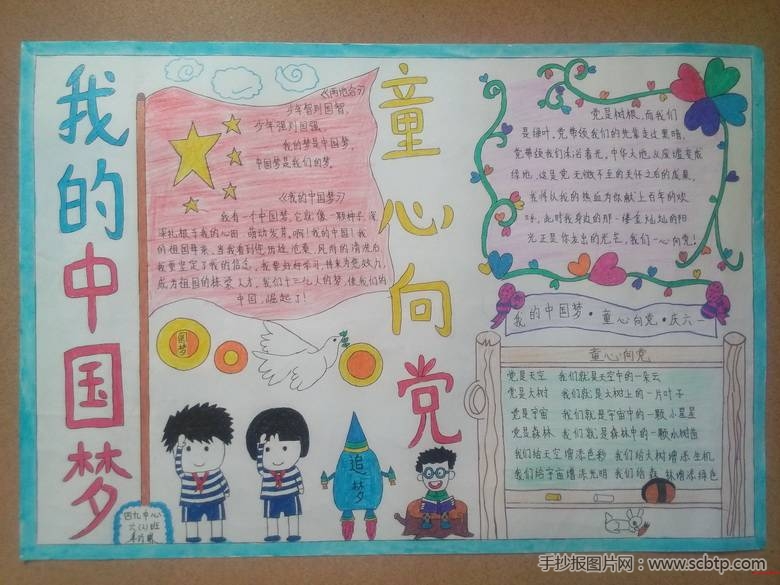 我的中国梦
童心向党
少年智则国智,
少年强则国强,
我的梦是中国梦,
中国梦是我们的梦。
《我的中国梦》
我有一个中国梦,它就像一颗种子,深
深扎根于我的心田,萌动发芽。啊!我的中国!我
我更坚定了我的信念,我要好好学习,将来为党效力,
成为祖国的栋梁人才,我们十三亿人的梦,使我们的
中国,崛起了!
圆梦
追梦
党是树根,而我们
是绿叶。党带领我们的先辈走过黑暗,
党带领我们沐浴春光。中华大地,从废墟变成
绿地,这是党无微不至的关怀之后的成果。
我将从我的热血为你献上百年的欢
呼,此时我身边的那一缕金灿灿的阳
光正是你发出的光芒,我们一心向党!
我的中国梦·童心向党·庆六一
童心向党
党是天空 我们就是天空中的一朵云
党是大树 我们就是大树上的一片叶子
党是宇宙 我们就是宇宙中的一颗小星星
党是森林 我们就是森林中的一颗小树苗
我们给天空增添色彩 我们给大树增添生机
我们给宇宙增添光明 我们给森林增添绿色
四九中心
手抄报图片网:www.scbtp.com